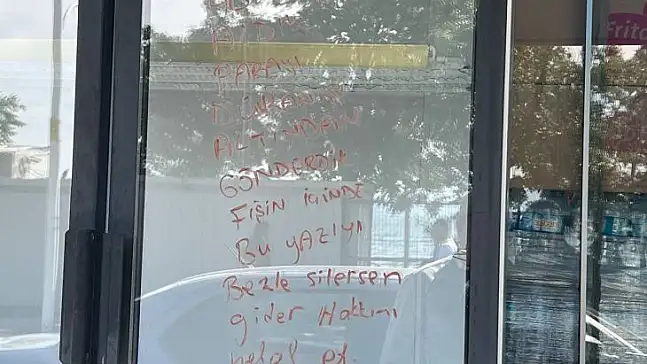 ALDIK
PARAYI
DÜKKANIN
ALTINDAN
GÖNDERDİK
FİŞİN İÇİNDE
BU YAZIYI
Bezle silersen
gider Hakkını
helal et.
Frito